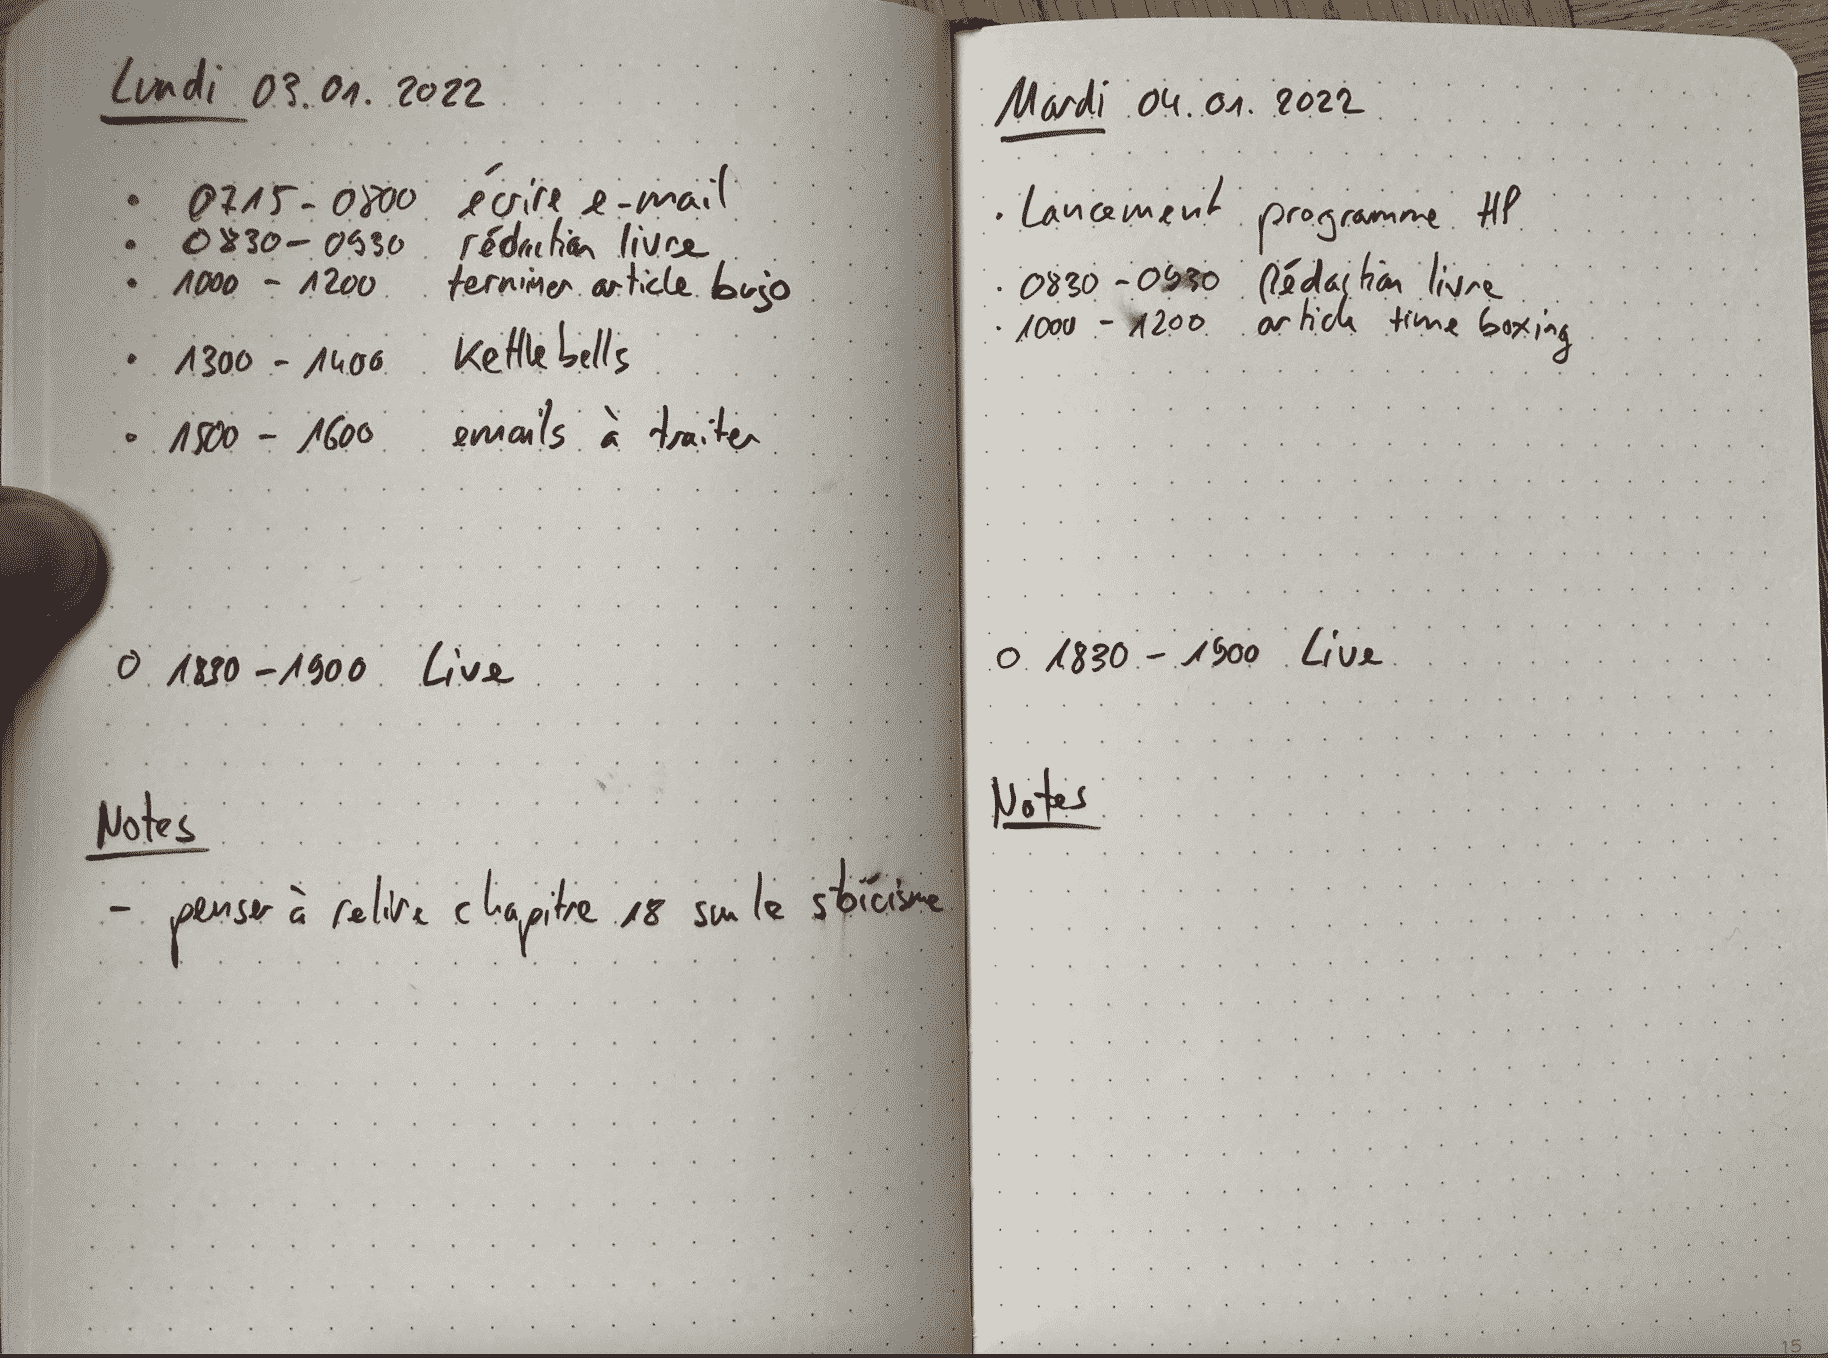 Lundi 03.01.2022
• 0715 - 0800 écrire e-mail
• 0830 - 0930 rédaction livre
• 1000 - 1200 terminer article bujo
• 1300 - 1400 Kettlebells
• 1500 - 1600 emails à traiter
O 1830 - 1900 Live
Notes
- penser à relire chapitre 18 sur le stoïcisme
Mardi 04.01.2022
• Lancement programme HP
• 0830 - 0930 Rédaction livre
• 1000 - 1200 article time boxing
O 1830 - 1900 Live
Notes
15